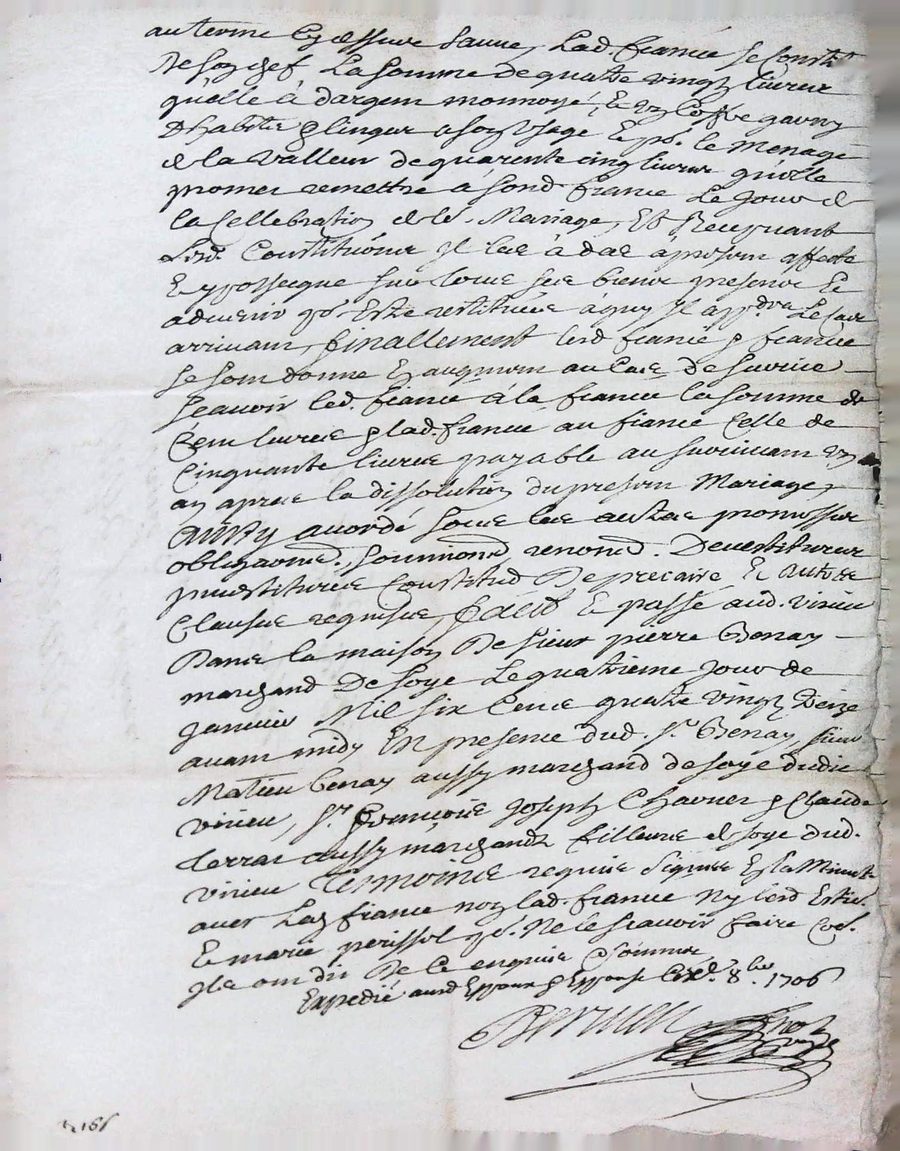 au terme cy dessure Lad. fiancée se constt.
De son chef La somme de quatre vingt livres
quelle à dargem monnoyé, & un coffre garny
Dhabits & lingue a son usage & pr. le menage
de la valleur de quarente cinq livres quelle
promet remettre à sond. fiance Le jour de
la Cellebration de le. Mariage, Et Recepvant
Lesd. Constitutions Il les à des àpresem affecte
& yposseque sur tous ses biens presens &
advenir pr. Estre restituées àquy Il appdra. Le cas
arrivam, finallement lesd fiancé & fiancée
se som donne En augmem au cas de survie
scavoir led. fiancé à la fiancée la somme de
Cem livres & lad. fiancée au fiancé Celle de
Cinquante livres payable au survivam un
an apres la dissolution du presem Mariage,
Ainsy acordé sous les autres promesses
obligaons. soumions renons. Devestitures
investitures Constituts De precaire & autres
Clauses requises, faict & passé aud. virieu
Dans la maison De sieur pierre Genay
marchand De soye Le quatrieme jour de
janvier Mil six Cens quatre vingt treize
avam midy En presence dud. sr. Genay, sieur
Matieu Genay aussy marchand de soye dudit
virieu, sr. françois joseph Charvet & Claude
terras aussy marchands filleurs de soye dud.
virieu temoins requis signés En la Minute
avec Led fiance non lad. fiancé Ny lesd
& marie perissol pr. Ne le scavoir faire Coe.
Ils om dit De ce enquis & sommés
Expedié ausd Espoux & Espouse 8bre 1706
166